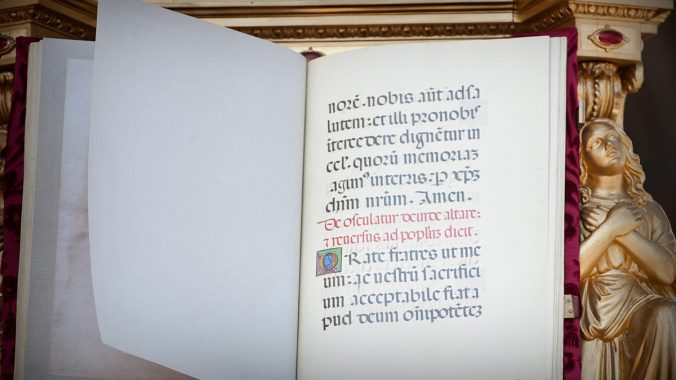 norē. nobis aūt ad sa
lutem: et illi pro nobis
īterce dere dignētur in
cel. quorū memoriaz
agimꝰ in terris. P xp̄ꝫ
dn̄m nr̄um. Amen.
De osculatur deinde altare:
⁊ reuersus ad populū dicit.
O Rate fratres ut me
um: ac uestrū sacrifici
um acceptabile fiat a
pud deum om̄ipotētez